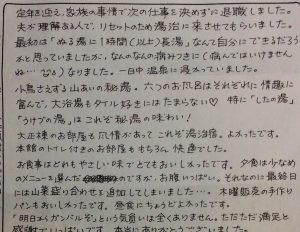 定年を迎え、家族の事情で次の仕事を決めずに退職しました。
夫が理解ある人で、リセットのため湯治に来させてもらいました。
最初は「ぬる湯に1時間(以上)長湯」なんて自分にできるだろう
かと思っていましたが、なんのなんの病みつきに(病んではいけません
ね…苦)なりました。一日中温泉に浸っていました。
小鳥さえずる山あいの秘湯。六つのお風呂はそれぞれに情趣に
富んで、大浴場もタイル好きにはたまらない♡ 特に「したの湯」
「うけづの湯」はこれぞ秘湯の味わい!
大正棟のお部屋も風情があって これぞ湯治宿。よかったです。
本館のトイレ付きのお部屋ももちろん 快適でした。
お食事はどれもやさしい味で とてもおいしかったです。夕食は少なめ
のメニューを選んだのですが、お腹いっぱい。それなのに最終日
には山菜盛り合わせを追加してしまいました…。木曜販売の手作り
パンもおいしかったです。昼食にちょうどよかったです。
「明日からガンバルぞ」という気負いは全くありません。ただただ満足と
感謝でいっぱいです。本当にありがとうございました。